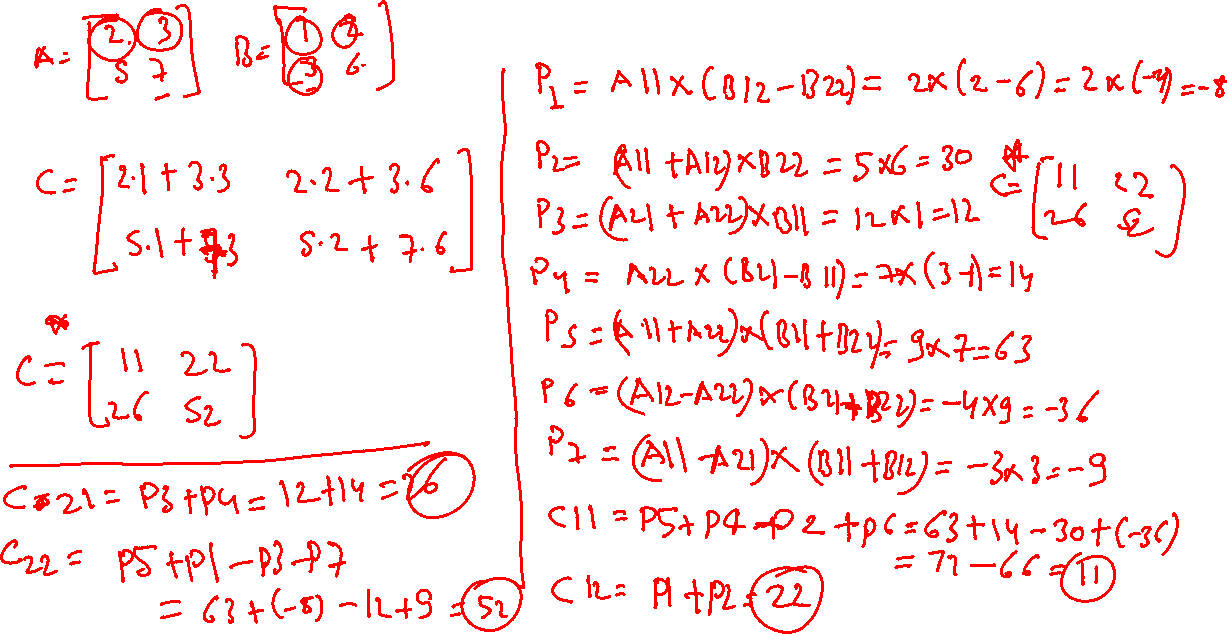 A = [2. 3
5 7]
B = [1 2
3 6.]
C = [2.1 + 3.3 2.2 + 3.6
5.1 + 7.3 5.2 + 7.6]
C = [11 22
26 52]
C21 = P3 + P4 = 12 + 14 = 26
C22 = P5 + P1 - P3 - P7
= 63 + (-8) - 12 + 9 = 52
P1 = A11 x (B12 - B22) = 2x (2-6) = 2 x (-4) = -8
P2 = (A11 + A12) x B22 = 5 x 6 = 30
P3 = (A21 + A22) x B11 = 12 x 1 = 12
C = [11 22
26 52]
P4 = A22 x (B21 - B11) = 7x (3-1) = 14
P5 = (A11 + A22) x (B11 + B22) = 9x7 = 63
P6 = (A12 - A22) x (B21 + B22) = -4 x 9 = -36
P7 = (A11 - A21) x (B11 + B12) = -3x3 = -9
C11 = P5 + P4 - P2 + P6 = 63 + 14 - 30 + (-36)
= 77 - 66 = 11
C12 = P1 + P2 = 22